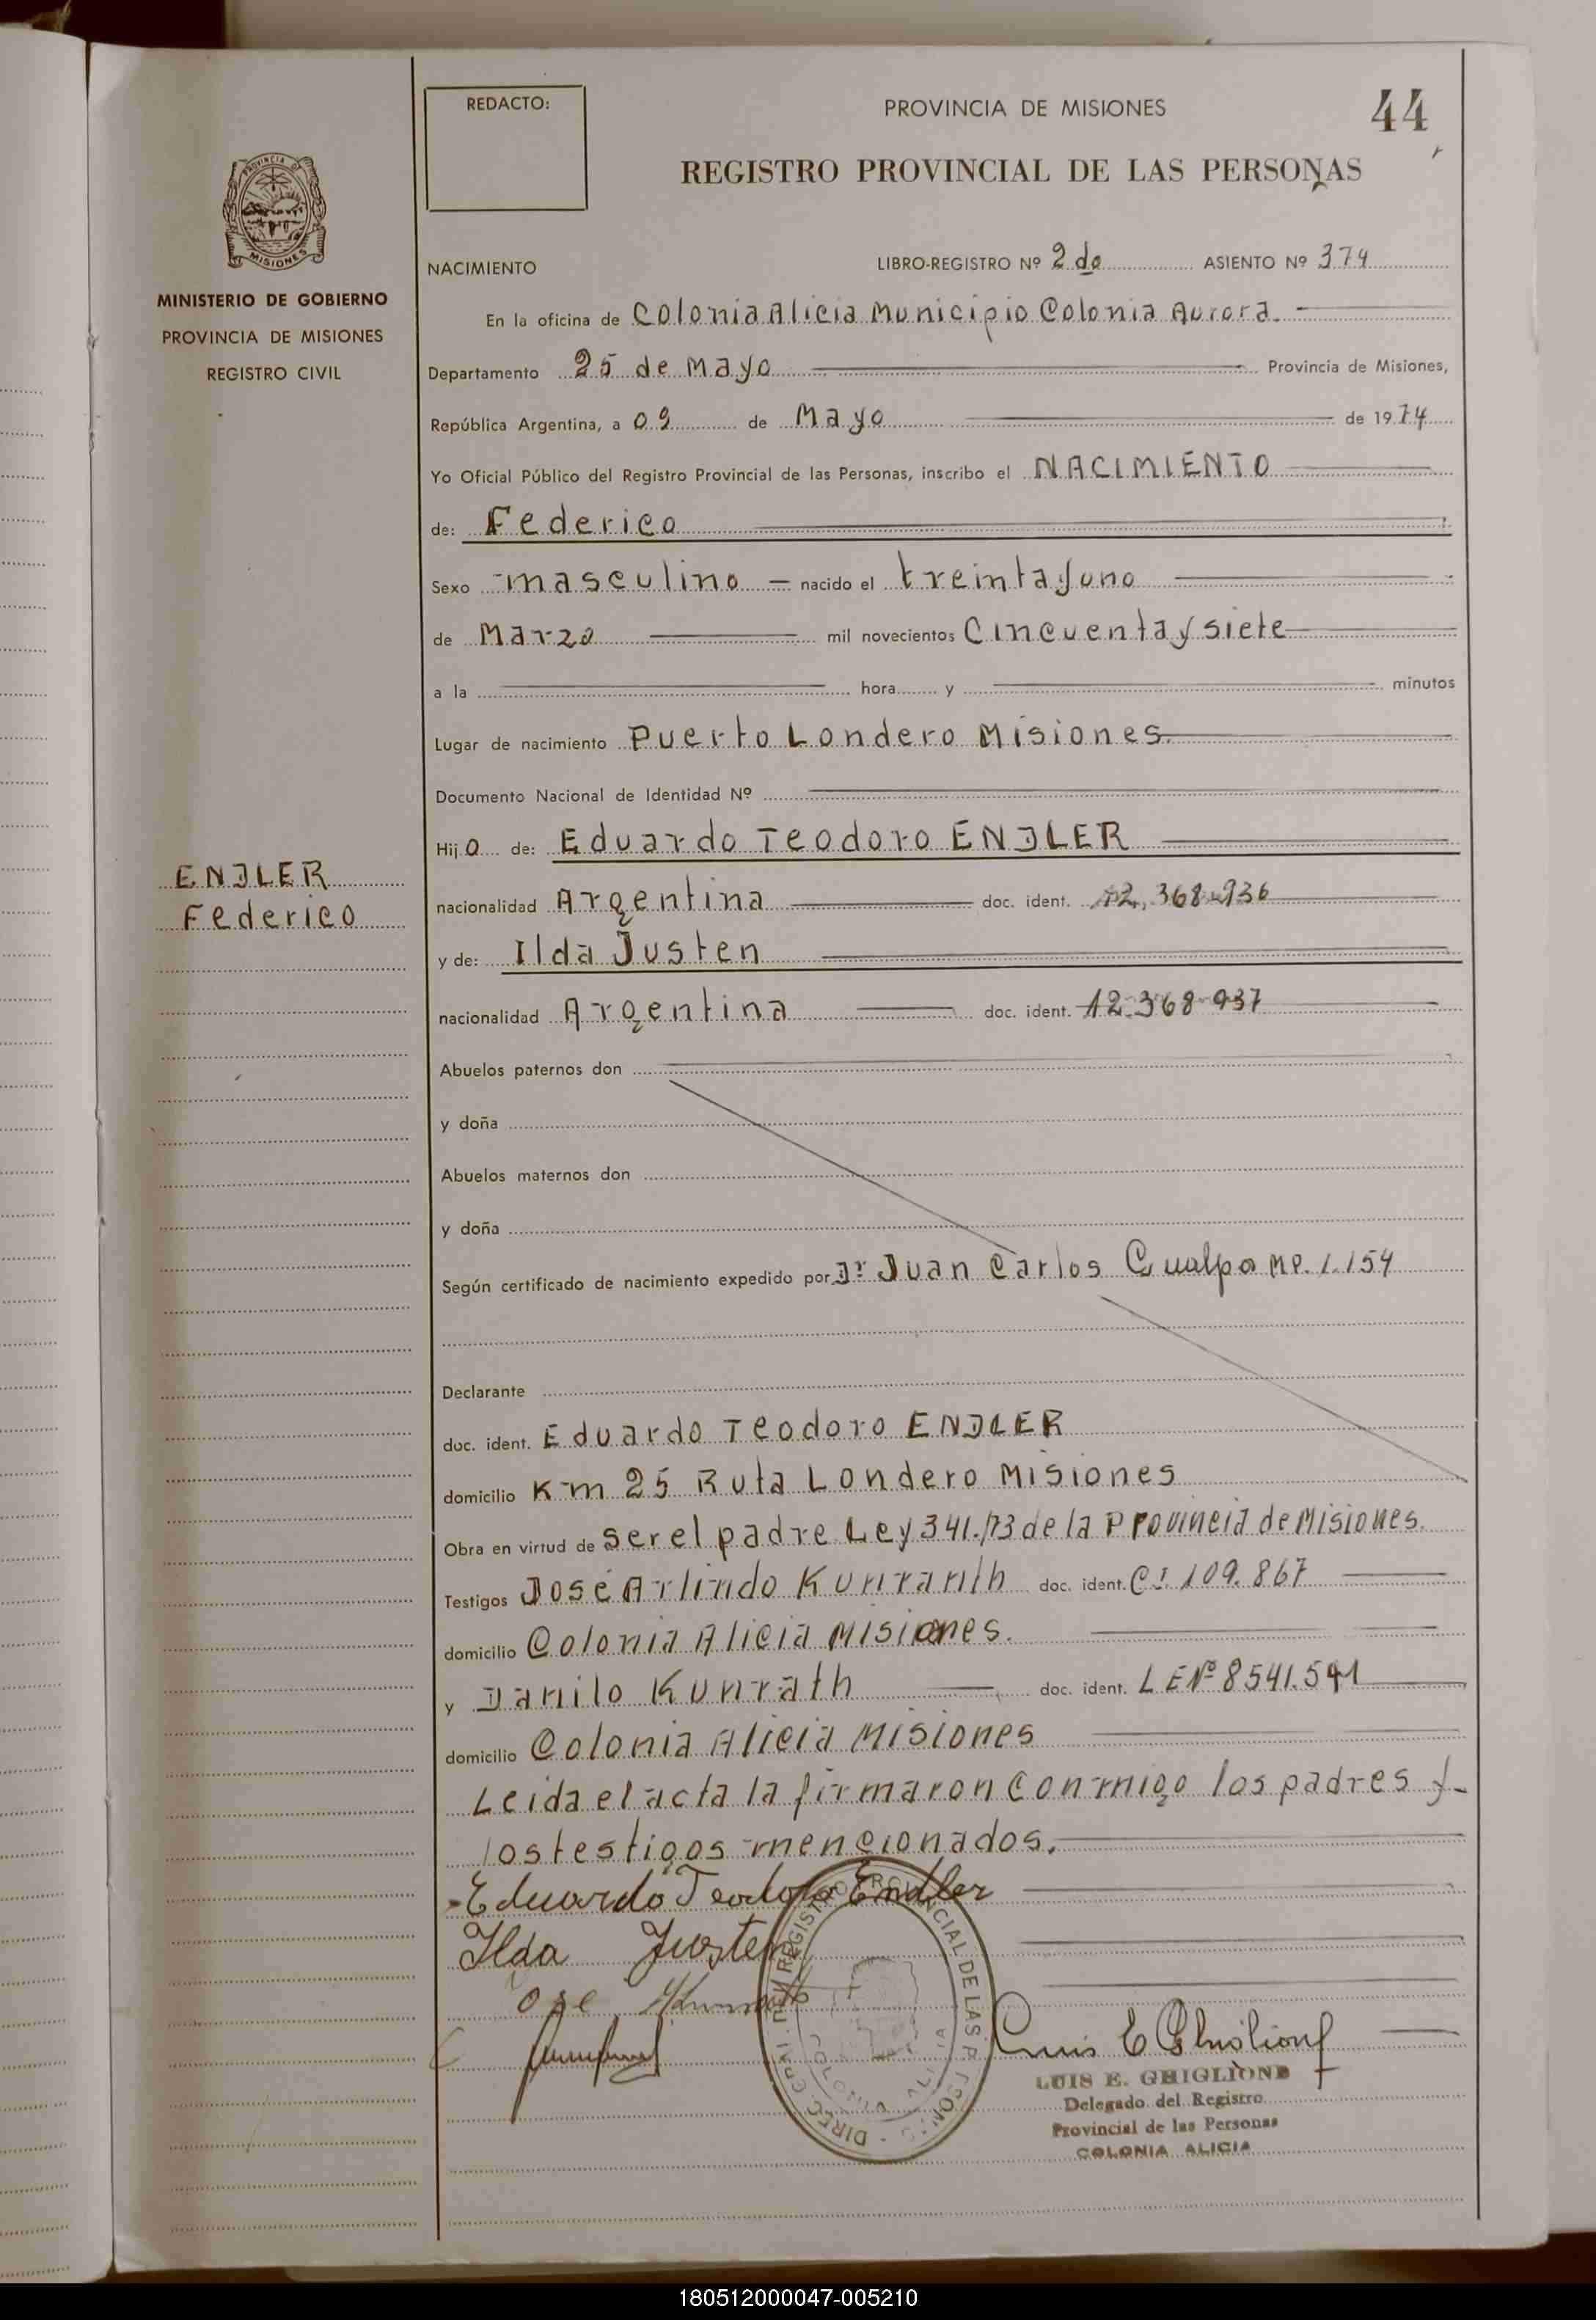 REDACTO:
PROVINCIA DE MISIONES
44
REGISTRO PROVINCIAL DE LAS PERSONAS
PROVINCIA DE MISIONES
MINISTERIO DE GOBIERNO
PROVINCIA DE MISIONES
REGISTRO CIVIL
NACIMIENTO LIBRO-REGISTRO Nº 2do ASIENTO Nº 374
En la oficina de Colonia Alicia Municipio Colonia Aurora.
Departamento 25 de Mayo Provincia de Misiones,
República Argentina, a 09 de Mayo de 1974
Yo Oficial Público del Registro Provincial de las Personas, inscribo el NACIMIENTO
de: Federico
Sexo masculino nacido el treinta y uno
de Marzo mil novecientos Cincuenta y siete
a la hora y minutos
Lugar de nacimiento Puerto Londero Misiones.
Documento Nacional de Identidad Nº
Hijo de: Eduardo Teodoro ENDLER
ENDLER
Federico
nacionalidad Argentina doc. ident. 12.368.936
y de: Ilda Justen
nacionalidad Argentina doc. ident. 12.368.937
Abuelos paternos don
y doña
Abuelos maternos don
y doña
Según certificado de nacimiento expedido por Dr Juan Carlos Gualpa MP. 1.154
Declarante
doc. ident. Eduardo Teodoro ENDLER
domicilio Km 25 Ruta Londero Misiones
Obra en virtud de ser el padre Ley 341/73 de la Provincia de Misiones.
Testigos José Arlindo Kunranth doc. ident. C.I. 109.867
domicilio Colonia Alicia Misiones.
y Danilo Kunrath doc. ident. LE Nº 8541.541
domicilio Colonia Alicia Misiones
Leida el acta la firmaron conmigo los padres y
los testigos mencionados.
Eduardo Teodoro Endler
Ilda Justen
DIREC. GRAL. DEL REGISTRO PROVINCIAL DE LAS PERSONAS
COLONIA ALICIA
Luis E Ghiglione
LUIS E. GHIGLIONE
Delegado del Registro
Provincial de las Personas
COLONIA ALICIA
180512000047-005210